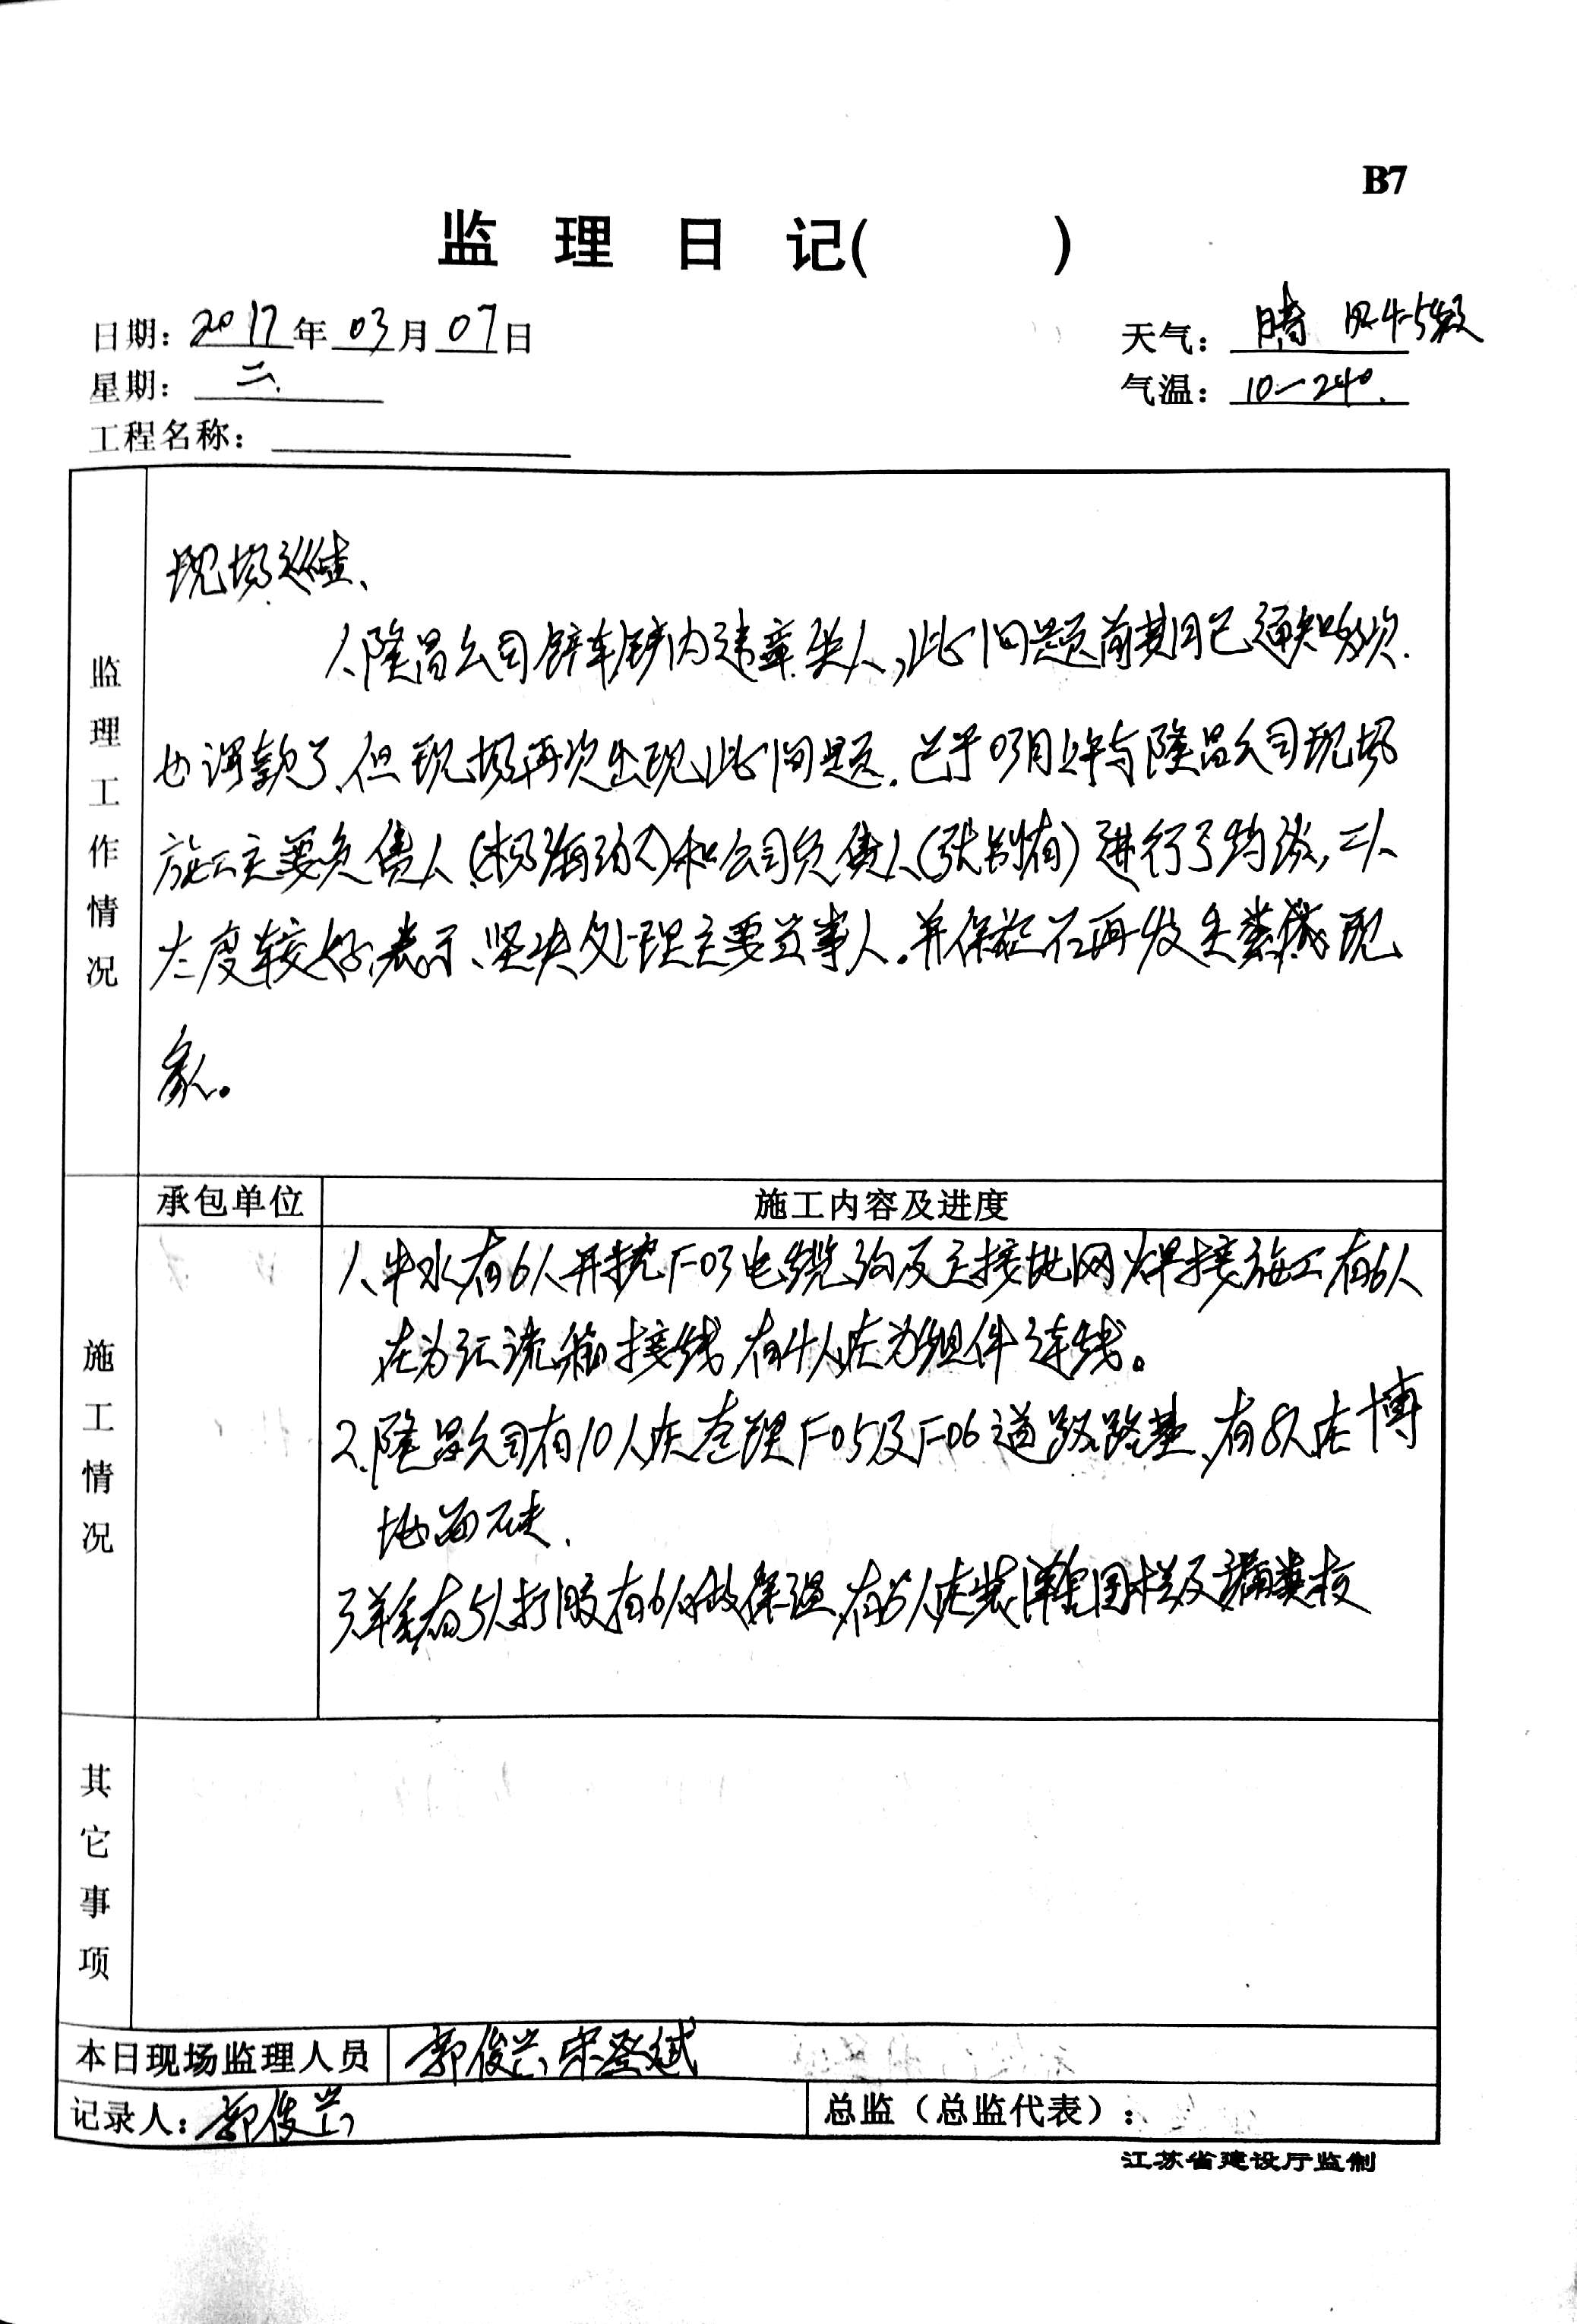 B7
监 理 日 记( )
日期: 2017年03月07日
天气: 晴 风4-5级
星期: 二.
气温: 10-24°.
工程名称:
监理工作情况
现场巡查、
1、隆昌公司铲车铲内违章坐人,此问题前期已通知多次.
也罚款了,但现场再次出现此问题.已于03月上午与隆昌公司现场
施工主要负责人(杨海动)和公司负责人(张有)进行了约谈,二人
态度较好,表示、坚决处理主要当事人。并保证不再发生类似现
象。
施工情况
承包单位
施工内容及进度
1、中水有6人开挖F-03电缆沟及主接地网焊接施工有6人
在为汇流箱接线,有4人在为组件连线。
2、隆昌公司有10人在整理F-05及F-06道路路基,有8人在
地面
3、有5人打胶有6人做保温,有5人在装围栏及
其它事项
本日现场监理人员
郭俊兰、宋登斌
记录人: 郭俊兰
总监(总监代表):
江苏省建设厅监制